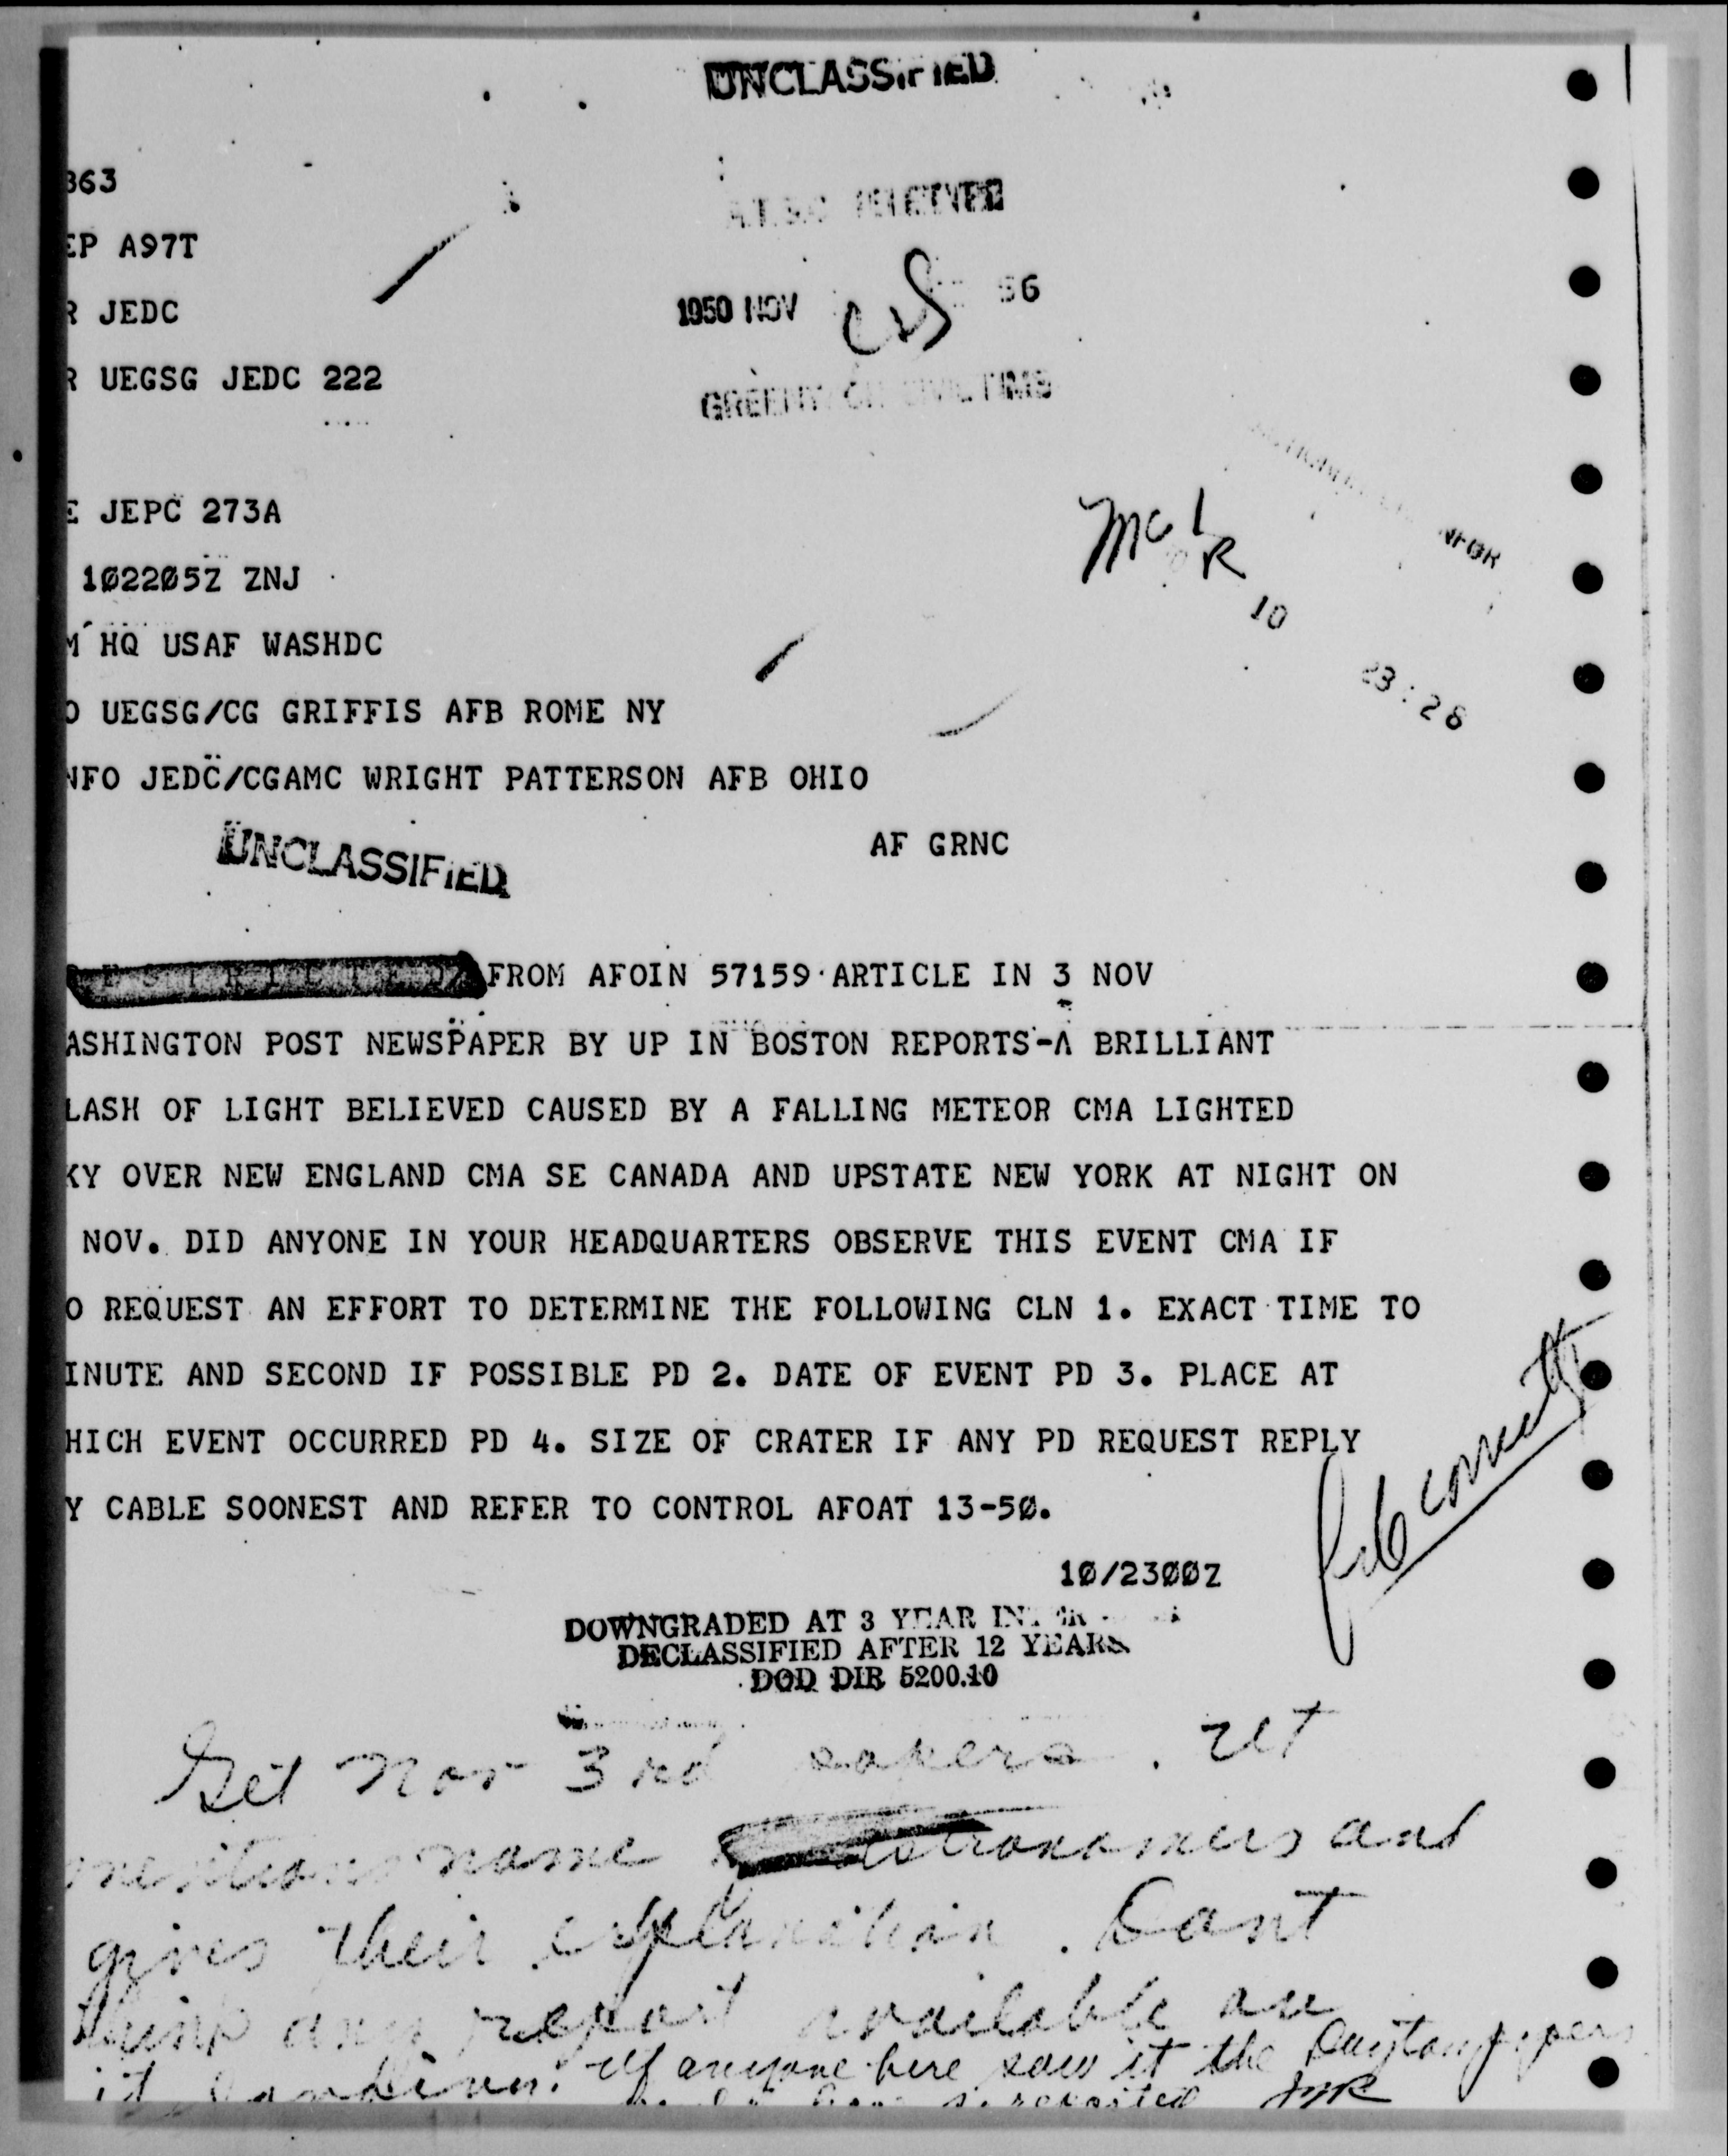 UNCLASSIFIED
363
EP A97T
RECEIVED
R JEDC
1950 NOV 56
R UEGSG JEDC 222
E JEPC 273A
10
1Ø22Ø5Z ZNJ
M HQ USAF WASHDC
23:28
O UEGSG/CG GRIFFIS AFB ROME NY
NFO JEDC/CGAMC WRIGHT PATTERSON AFB OHIO
AF GRNC
UNCLASSIFIED
FROM AFOIN 57159 ARTICLE IN 3 NOV
ASHINGTON POST NEWSPAPER BY UP IN BOSTON REPORTS-A BRILLIANT
LASH OF LIGHT BELIEVED CAUSED BY A FALLING METEOR CMA LIGHTED
KY OVER NEW ENGLAND CMA SE CANADA AND UPSTATE NEW YORK AT NIGHT ON
NOV. DID ANYONE IN YOUR HEADQUARTERS OBSERVE THIS EVENT CMA IF
O REQUEST AN EFFORT TO DETERMINE THE FOLLOWING CLN 1. EXACT TIME TO
INUTE AND SECOND IF POSSIBLE PD 2. DATE OF EVENT PD 3. PLACE AT
HICH EVENT OCCURRED PD 4. SIZE OF CRATER IF ANY PD REQUEST REPLY
Y CABLE SOONEST AND REFER TO CONTROL AFOAT 13-5Ø.
1Ø/23ØØZ
DOWNGRADED AT 3 YEAR
DECLASSIFIED AFTER 12 YEARS
DOD DIR 5200.10
Get Nov 3rd papers. It
mentions name astronomers and
gives their explanation. Dont
think any report available on
it landing. If anyone here saw it the Dayton papers
reported